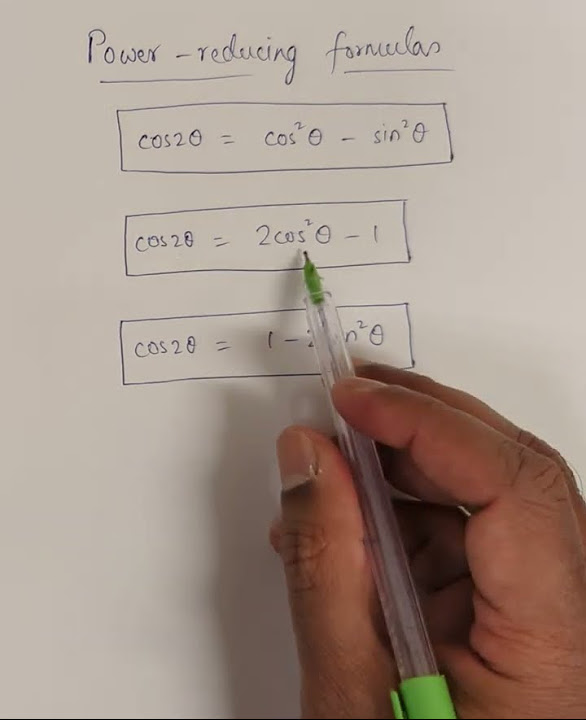 Power-reducing formulas
cos2θ = cos²θ - sin²θ
cos2θ = 2cos²θ - 1
cos2θ = 1 - n²θ